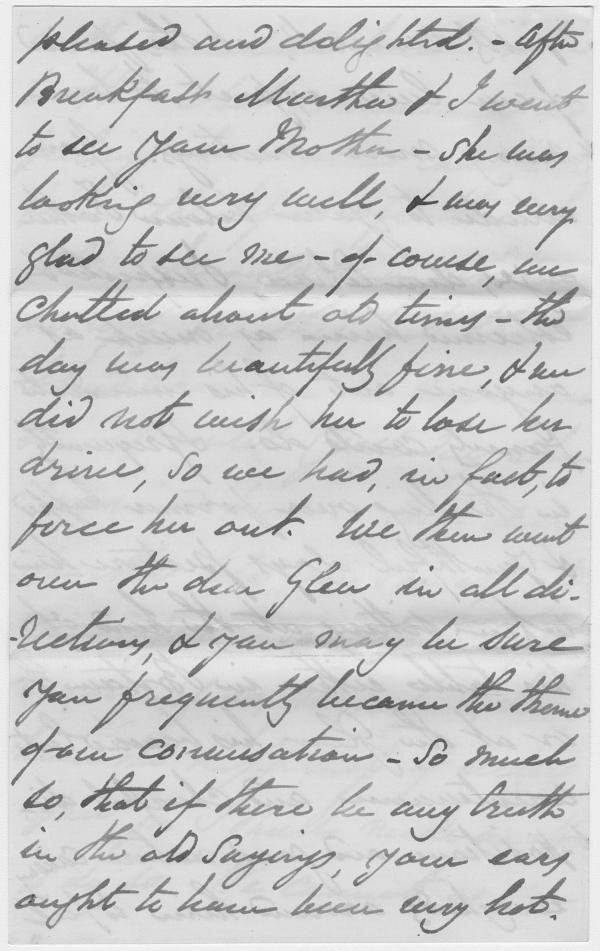 pleased and delighted. - After
Breakfast Martha & I went
to see your Mother - She was
looking very well, & was very
glad to see me - of course, we
chatted about old times - the
day was beautifully fine, & we
did not wish her to lose her
drive, so we had, in fact, to
force her out. We then went
over the dear Glen in all di-
-rections, & you may be sure
you frequently became the theme
of our conversation - So much
so, that if there be any truth
in the old Sayings, your ears
ought to have been very hot.